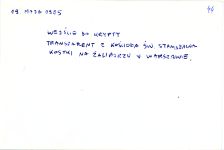 09. MAJA 1985
44
WEJŚCIE DO KRYPTY
TRANSPARENT Z KOŚCIOŁA ŚW. STANISŁAWA
KOSTKI NA ŻOLIBORZU W WARSZAWIE.